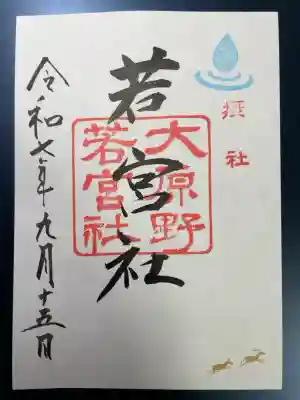 摂社
若宮社
大原野
若宮社
令和七年九月十五日